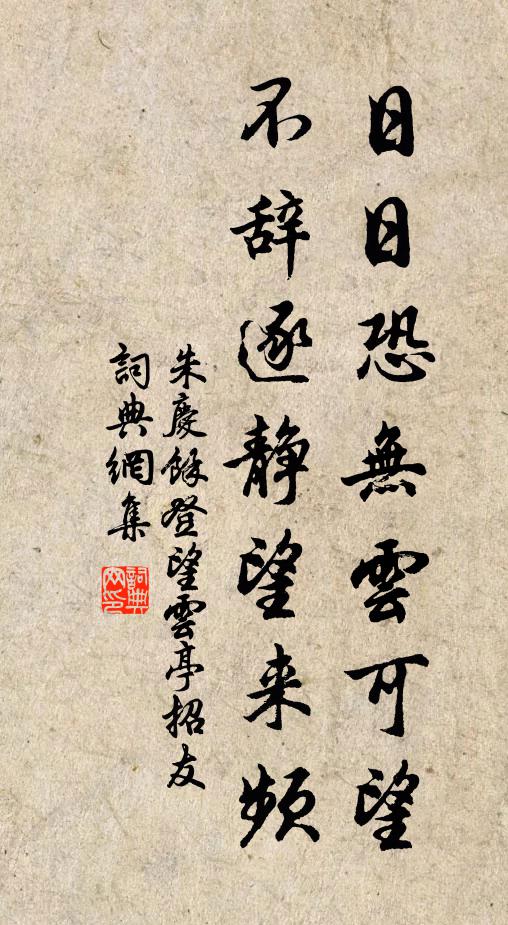 日日恐無雲可望
不辞逐静望来頻
朱慶餘登望雲亭招友
詞典網集
詞典
网印